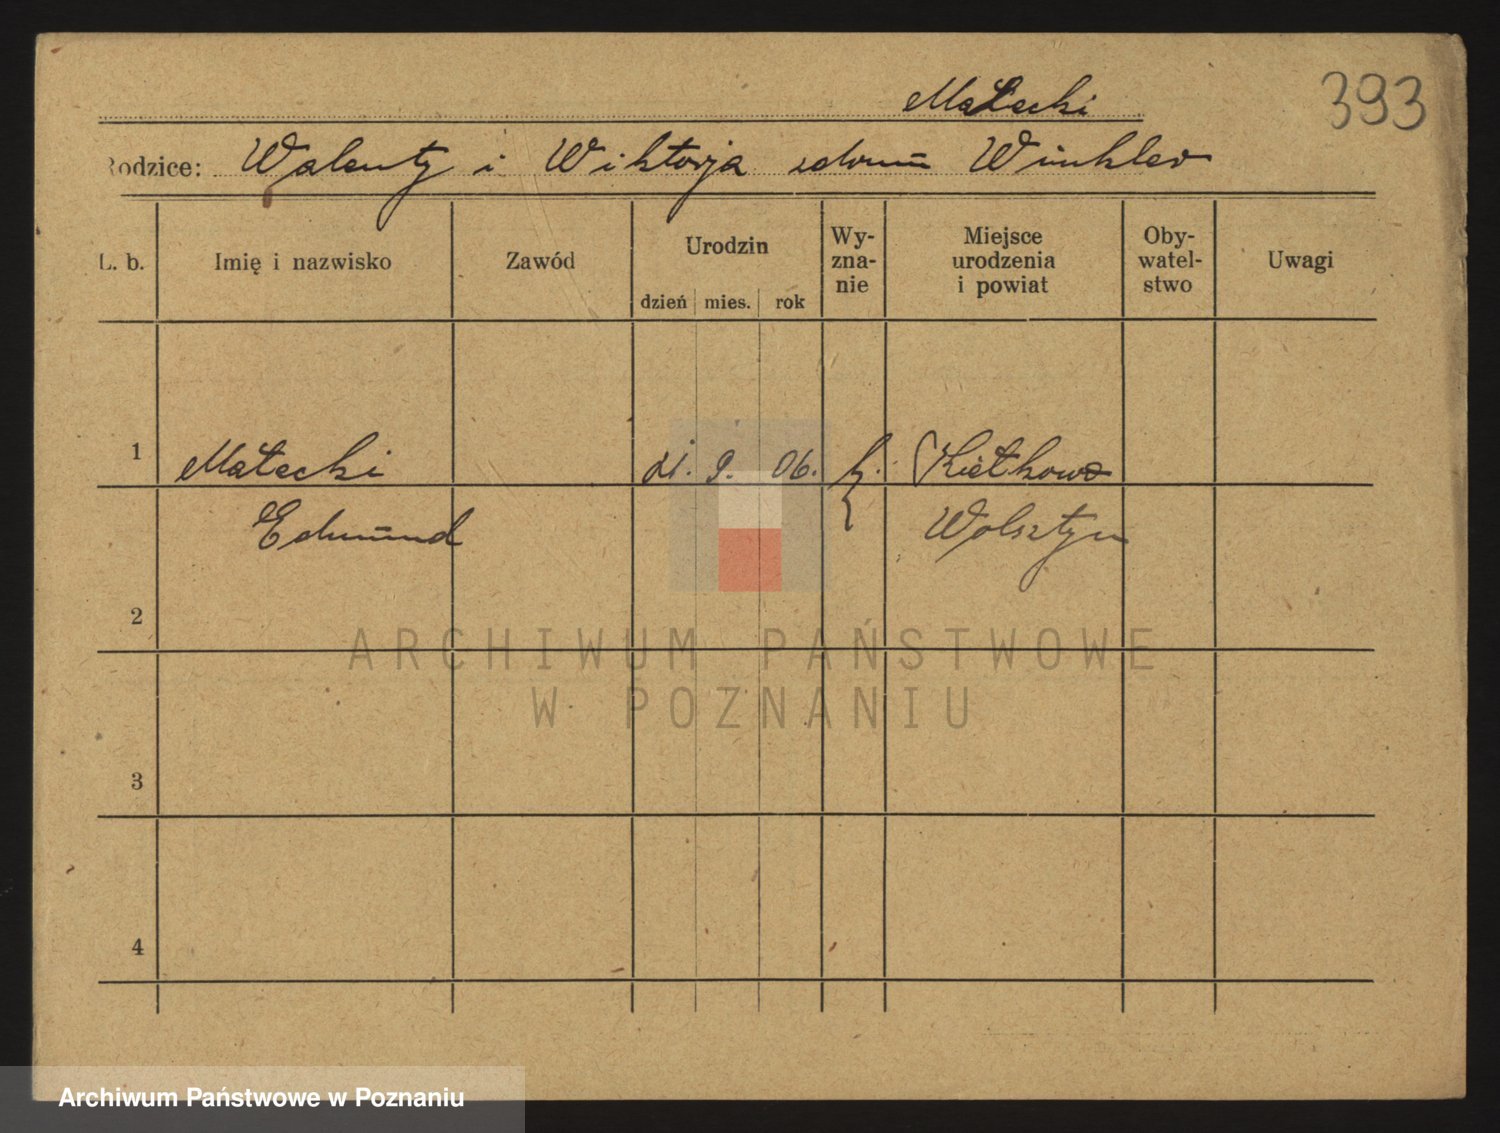 Małecki
393
Rodzice: Walenty i Wiktorja z domu Winkler
L. b.
Imię i nazwisko
Zawód
Urodzin
dzień mies. rok
Wy-
zna-
nie
Miejsce
urodzenia
i powiat
Oby-
watel-
stwo
Uwagi
1
Małecki
9. 06. k. Kiełkowo
Edmund
Wolsztyn
2
3
4
ARCHIWUM PAŃSTWOWE
W POZNANIU
Archiwum Państwowe w Poznaniu